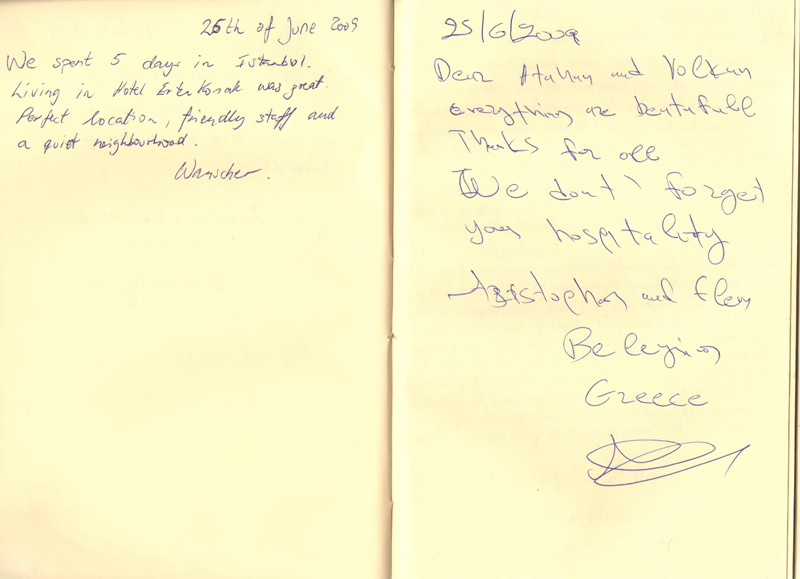 25th of June 2009
We spent 5 days in Istanbul.
Living in Hotel Erten Konak was great.
Perfect location, friendly staff and
a quiet neighbourhood.
Wanscher.
25/6/2009
Dear Atahan and Volkan
everything are beutafull
Thanks for all
We dont' forget
your hospitality
Aristophan and
Greece